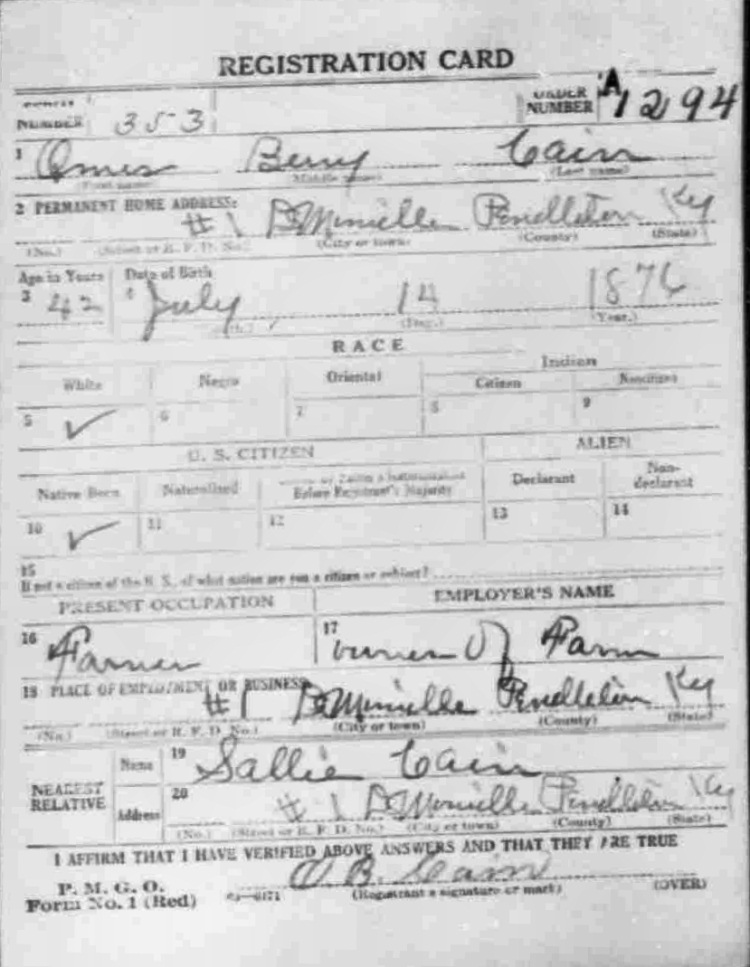 REGISTRATION CARD
SERIAL NUMBER 353 ORDER NUMBER A1294
1 Omer Berry Cain
(First name) (Middle name) (Last name)
2 PERMANENT HOME ADDRESS:
#1 DeMossville Pendleton Ky
(No.) (Street or R. F. D. No.) (City or town) (County) (State)
Age in Years Date of Birth
3 42 4 July 14 1876
(Month.) (Day.) (Year.)
RACE
White Negro Oriental Indian
Citizen Noncitizen
5 ✓ 6 7 8 9
U. S. CITIZEN ALIEN
Native Born Naturalized Citizen by Father's Naturalization Before Registrant's Majority Declarant Non-declarant
10 ✓ 11 12 13 14
15
If not a citizen of the U. S., of what nation are you a citizen or subject?
PRESENT OCCUPATION EMPLOYER'S NAME
16 Farmer 17 owner of Farm
18 PLACE OF EMPLOYMENT OR BUSINESS:
#1 DeMossville Pendleton Ky
(No.) (Street or R. F. D. No.) (City or town) (County) (State)
NEAREST RELATIVE
Name 19 Sallie Cain
Address 20 #1 DeMossville Pendleton Ky
(No.) (Street or R. F. D. No.) (City or town) (County) (State)
I AFFIRM THAT I HAVE VERIFIED ABOVE ANSWERS AND THAT THEY ARE TRUE
P. M. G. O.
Form No. 1 (Red) O B. Cain
(Registrant's signature or mark) (OVER)